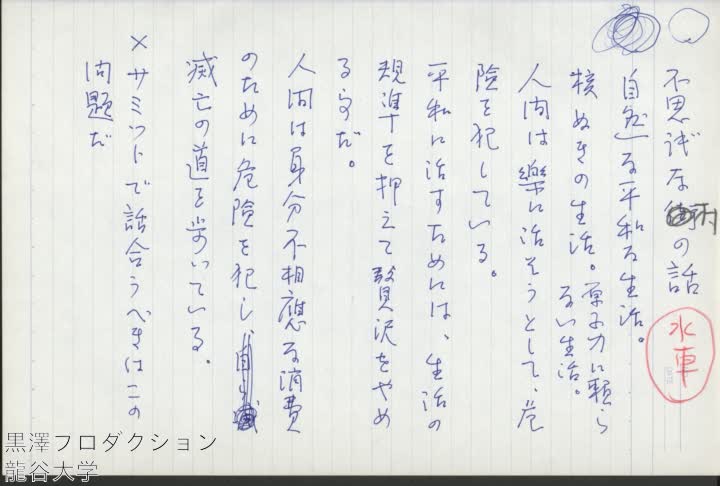 不思議な村の話
水車
自然な平和な生活。
核ぬきの生活。原子力に頼ら
ない生活。
人間は樂に活そうとして、危
険を犯している。
平和に活すためには、生活の
規準を押えて贅沢をやめ
る事だ。
人間は身分不相應な消費
のために危険を犯し、自ら
滅亡の道を歩いている。
×サミットで話合うべきはこの
問題だ
黒澤プロダクション
龍谷大学